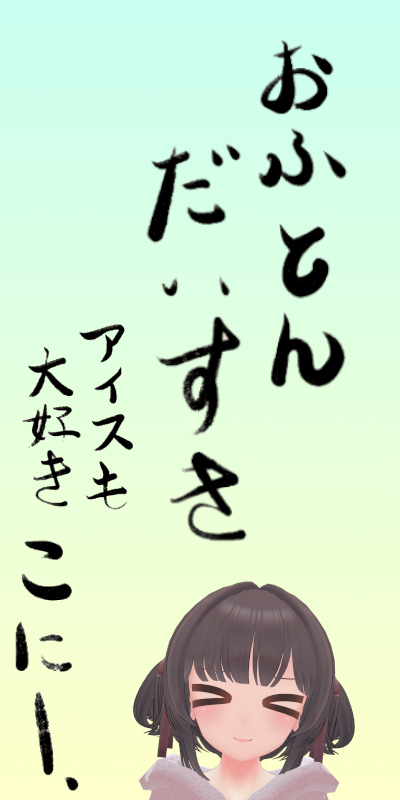 おふとん
だいすき
アイスも
大好き
こにー、